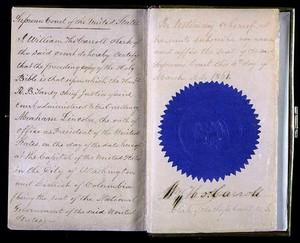 Supreme Court of the United States
I William Tho Carroll clerk of
the said court do hereby certify
that the preceding copy of the Holy
Bible is that upon which the Honble
R. B. Taney chief Justice of said
court administered to His Excellency
Abraham Lincoln, the oath of
office as President of the United
States, on the day of the date hereof
at the Capitol of the United States
in the City of Washington
and District of Columbia
being the seat of the National
Government of the said United
States
In testimony whereof I
hereunto subscribe my name
and affix the seal of the said
supreme court this 4th day of
March A.D. 1861.
Wm Tho. Carroll
Clerk of the Sup. Court U.S.